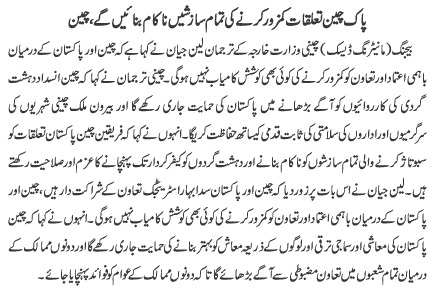 پاک چین تعلقات کمزور کرنے کی تمام سازشیں ناکام بنائیں گے، چین
بیجنگ (مانیٹرنگ ڈیسک) چینی وزارت خارجہ کے ترجمان لین جیان نے کہا ہے کہ چین اور پاکستان کے درمیان
باہمی اعتماد اور تعاون کو کمزور کرنے کی کوئی بھی کوشش کامیاب نہیں ہوگی۔ چینی ترجمان نے کہا کہ چین انسداد دہشت
گردی کی کارروائیوں کو آگے بڑھانے میں پاکستان کی حمایت جاری رکھے گا اور بیرون ملک چینی شہریوں کی
سرگرمیوں اور اداروں کی سلامتی کی ثابت قدمی کیساتھ حفاظت کریگا۔ انہوں نے کہا کہ فریقین چین پاکستان تعلقات کو
سبوتاژ کرنے والی تمام سازشوں کو ناکام بنانے اور دہشت گردوں کو کیفر کردار تک پہنچانے کا عزم اور صلاحیت رکھتے
ہیں۔ لین جیان نے اس بات پر زور دیا کہ چین اور پاکستان سدا بہار اسٹریٹجک تعاون کے شراکت دار ہیں، چین اور
پاکستان کے درمیان باہمی اعتماد اور تعاون کو کمزور کرنے کی کوئی بھی کوشش کامیاب نہیں ہوگی۔ انہوں نے کہا کہ چین
پاکستان کی معاشی اور سماجی ترقی اور لوگوں کے ذریعہ معاش کو بہتر بنانے کی حمایت جاری رکھے گا اور دونوں ممالک کے
درمیان تمام شعبوں میں تعاون مضبوطی سے آگے بڑھائے گا تاکہ دونوں ممالک کے عوام کو فوائد پہنچایا جائے۔